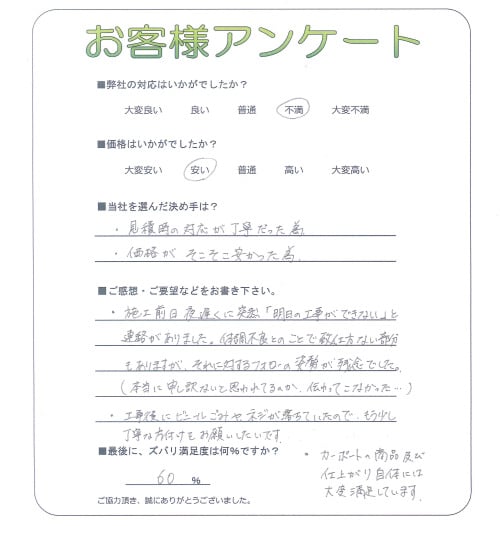 お客様アンケート
■弊社の対応はいかがでしたか？
大変良い 良い 普通 不満 大変不満
■価格はいかがでしたか？
大変安い 安い 普通 高い 大変高い
■当社を選んだ決め手は？
・見積時の対応が丁寧だった為
・価格がそこそこ安かった為
■ご感想・ご要望などをお書き下さい。
・施工前日夜遅くに突然「明日の工事ができない」と
連絡がありました。体調不良とのことで致仕方ない部分
もありますが、それに対するフォローの姿勢が残念でした。
(本当に申し訳ないと思われてるのか、伝わってこなかった…)
・工事後にビニールごみやネジが落ちていたので、もう少し
丁寧な片付けをお願いしたいです。
■最後に、ズバリ満足度は何%ですか？
60 %
・カーポートの商品及び
仕上がり自体には
大変満足しています。
ご協力頂き、誠にありがとうございました。